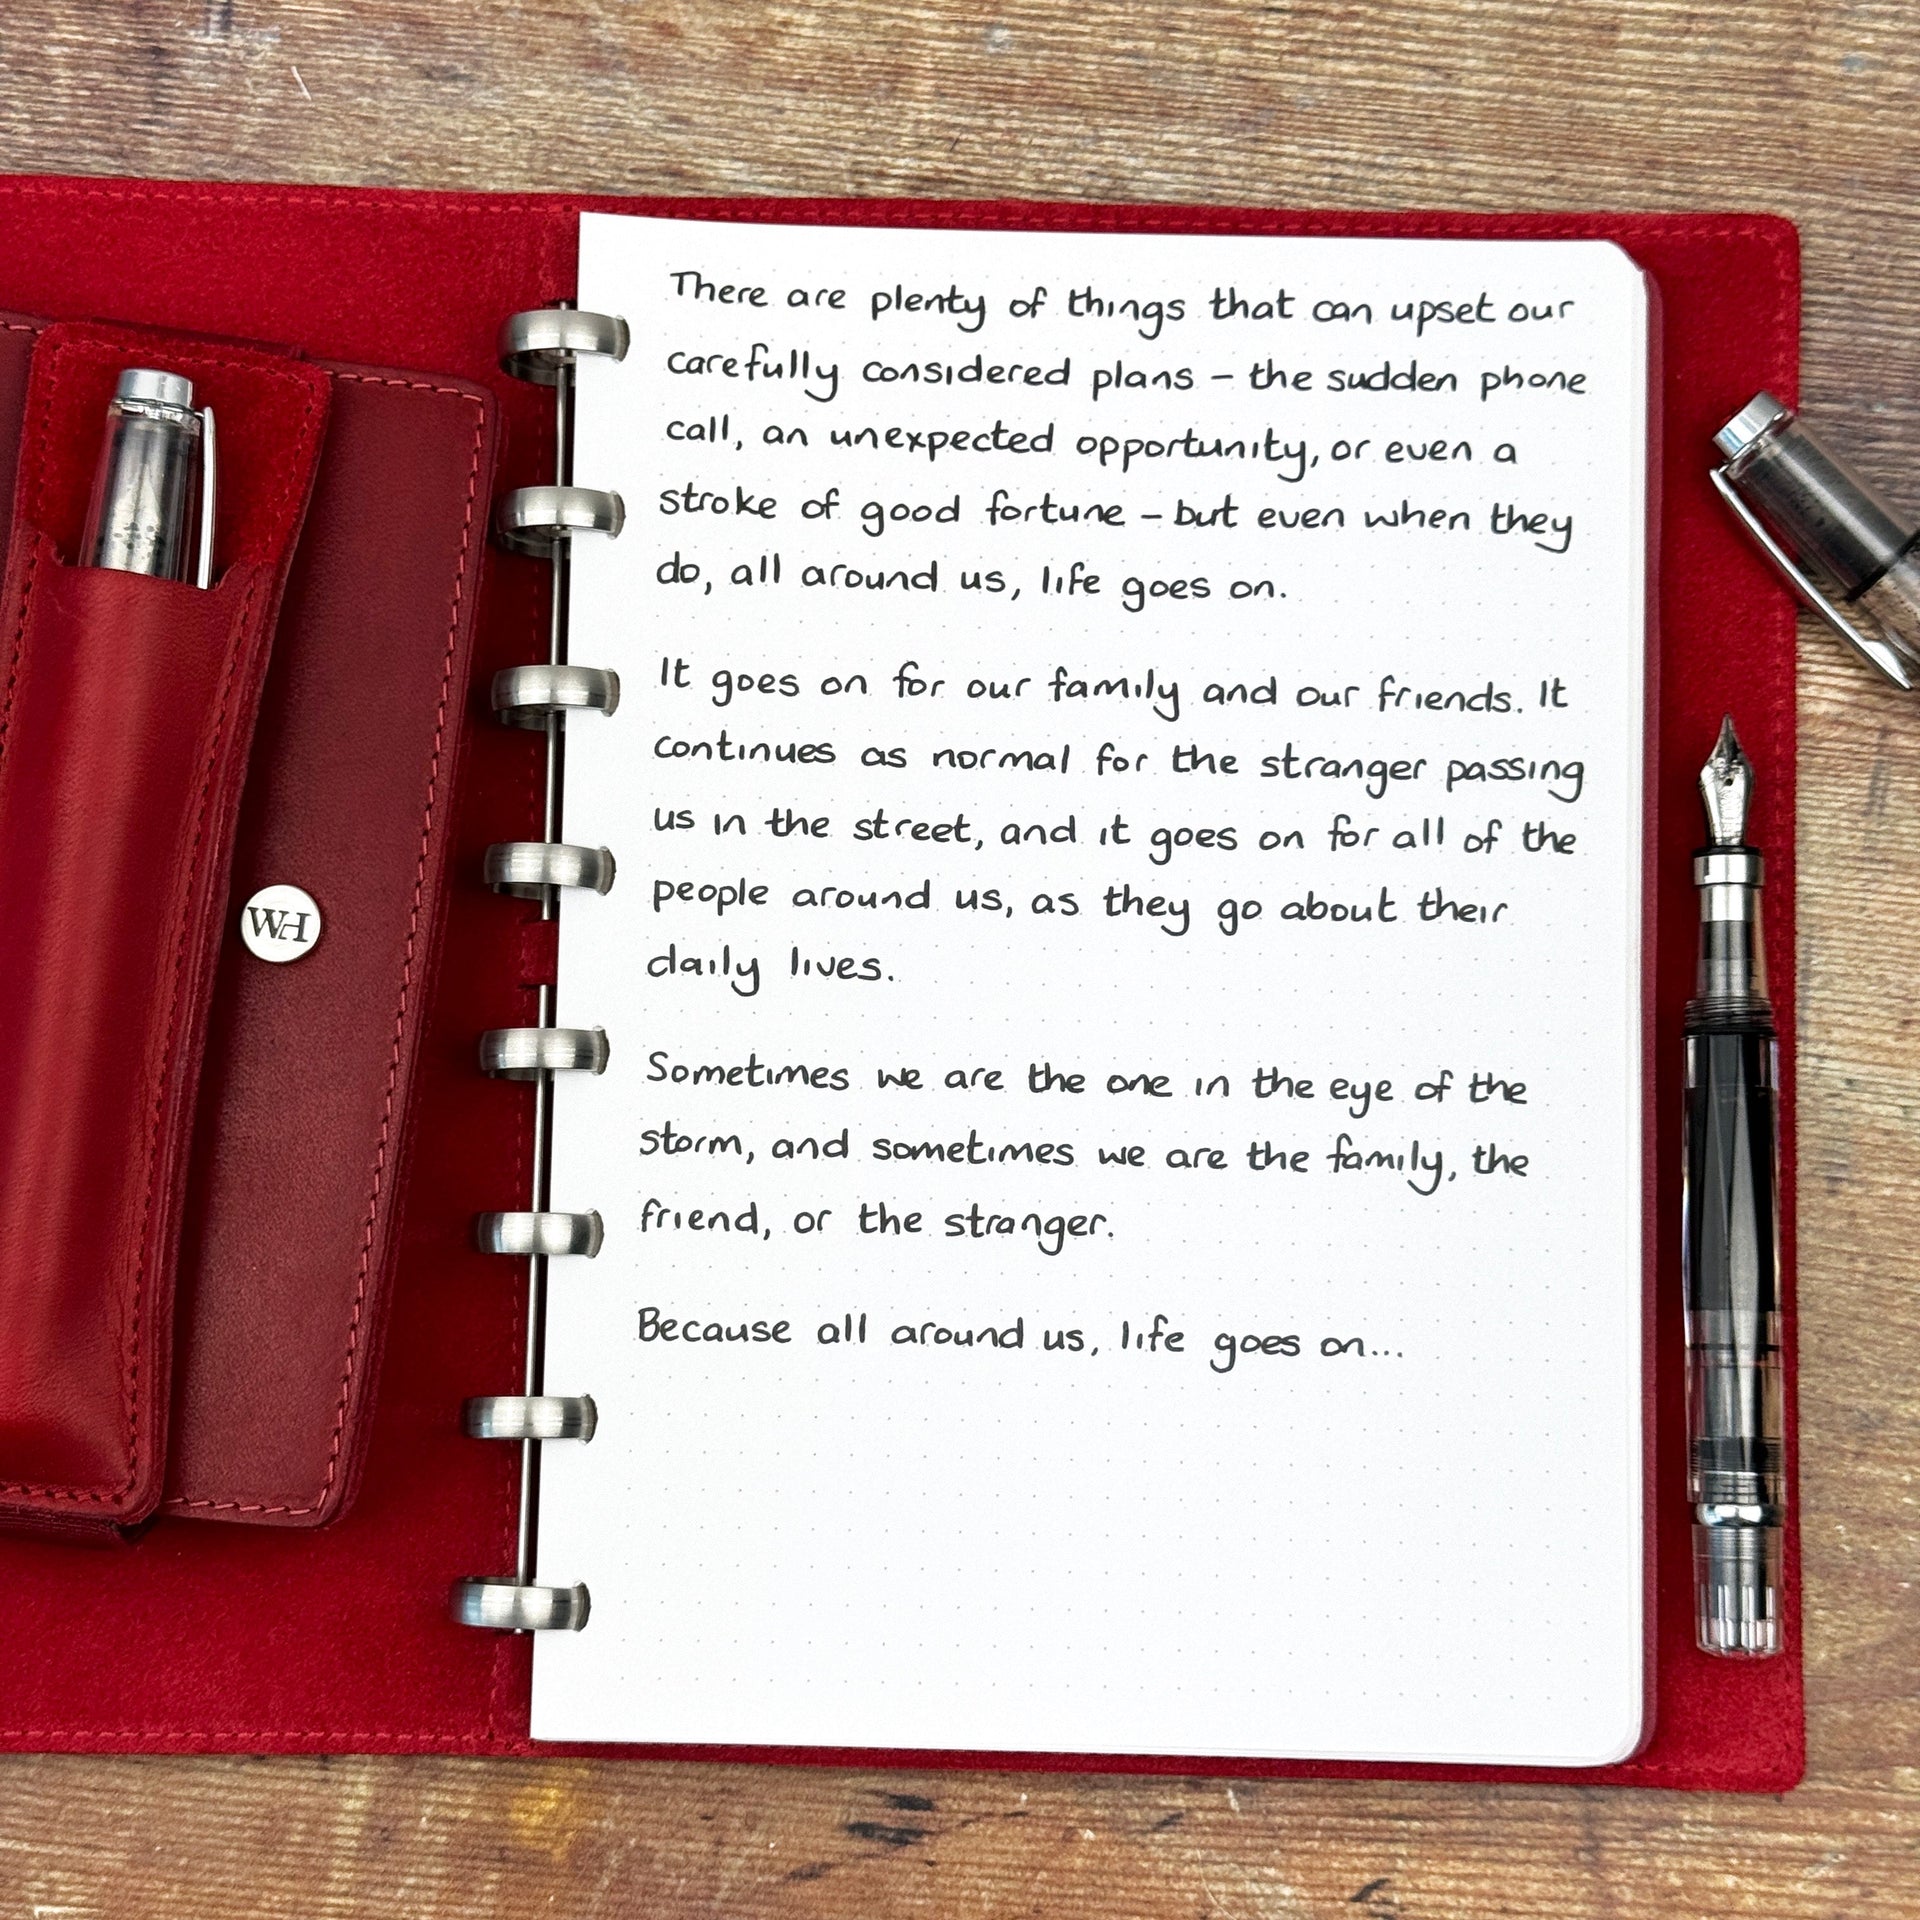 There are plenty of things that can upset our
carefully considered plans – the sudden phone
call, an unexpected opportunity, or even a
stroke of good fortune – but even when they
do, all around us, life goes on.
It goes on for our family and our friends. It
continues as normal for the stranger passing
us in the street, and it goes on for all of the
people around us, as they go about their
daily lives.
Sometimes we are the one in the eye of the
storm, and sometimes we are the family, the
friend, or the stranger.
Because all around us, life goes on...
WH